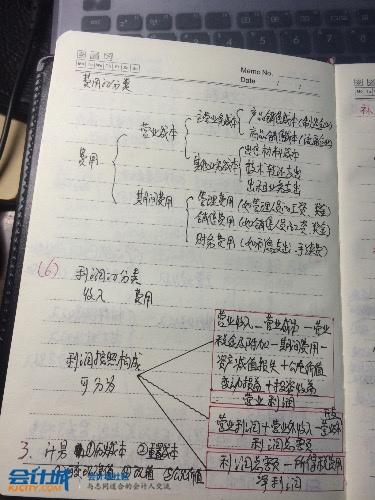 Memo No.
Date / /
费用的分类
费用
营业成本
主营业务成本
产品销售成本(制造企业)
商品销售成本(流通企业)
其他业务成本
出售材料成本
技术转让支出
出租业务支出
期间费用
管理费用(如管理人员的工资、奖金)
销售费用(如销售人员的工资、奖金)
财务费用(如利息支出、手续费)
(6) 利润的分类
收入 费用
利润按照构成
可分为
营业收入-营业成本-营业
税金及附加-期间费用-
资产减值损失+公允价值
变动损益+投资收益
营业利润
营业利润+营业外收入-营业外
支出
利润总额
利润总额-所得税费用
净利润
3. 计量
会计城
会计城论坛
与志同道合的会计人交流